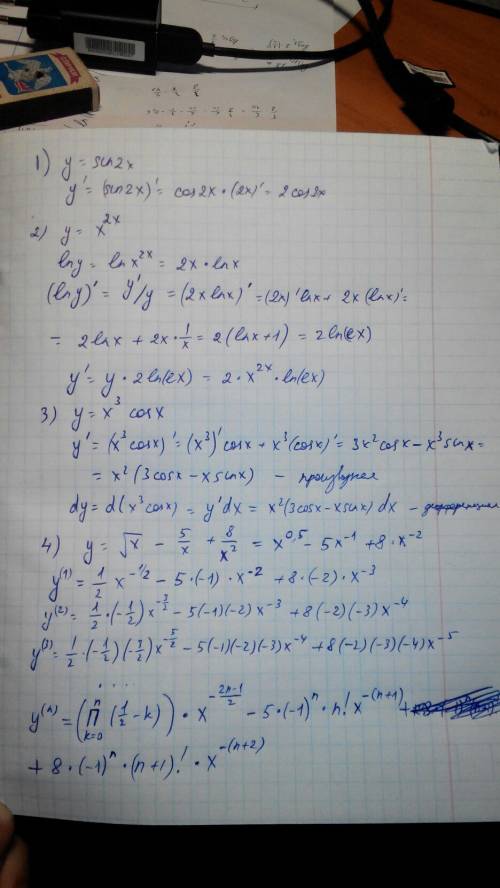 1) y = sin2x
y' = (sin2x)' = cos2x·(2x)' = 2cos2x
2) y = x^{2x}
lny = lnx^{2x} = 2x·lnx
(lny)' = y'/y = (2xlnx)' = (2x)'lnx + 2x(lnx)' =
= 2lnx + 2x·\frac{1}{x} = 2(lnx+1) = 2ln(ex)
y' = y·2ln(ex) = 2·x^{2x}·ln(ex)
3) y = x^3 cosx
y' = (x^3cosx)' = (x^3)'cosx + x^3(cosx)' = 3x^2cosx - x^3sinx =
= x^2(3cosx - xsinx) - производная
dy = d(x^3cosx) = y'dx = x^2(3cosx - xsinx)dx - дифференциал
4) y = \sqrt{x} - \frac{5}{x} + \frac{8}{x^2} = x^{0,5} - 5x^{-1} + 8·x^{-2}
y^{(1)} = \frac{1}{2}x^{-1/2} - 5·(-1)·x^{-2} + 8·(-2)·x^{-3}
y^{(2)} = \frac{1}{2}·(-\frac{1}{2})x^{-\frac{3}{2}} - 5(-1)(-2)x^{-3} + 8(-2)(-3)x^{-4}
y^{(3)} = \frac{1}{2}·(-\frac{1}{2})(-\frac{3}{2})x^{-\frac{5}{2}} - 5(-1)(-2)(-3)x^{-4} + 8(-2)(-3)(-4)x^{-5}
.....
y^{(n)} = (\prod_{k=0}^{n}(\frac{1}{2}-k))·x^{-\frac{2n-1}{2}} - 5·(-1)^n·n!x^{-(n+1)}
+ 8·(-1)^n·(n+1)!·x^{-(n+2)}